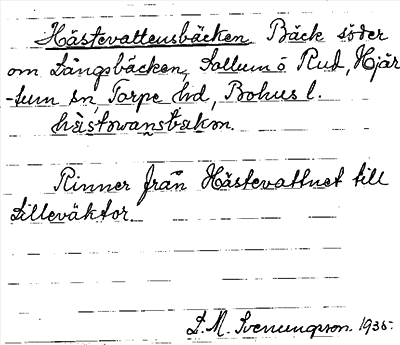 Hästevattensbäcken Bäck söder
om Långsbäcken, Sollum ö Rud, Hjär
-tum sn, Torpe hd, Bohus l.
hästowanstækon.
Rinner från Hästevattnet till
Lilleväktor.
L. M. Svenungson. 1935.